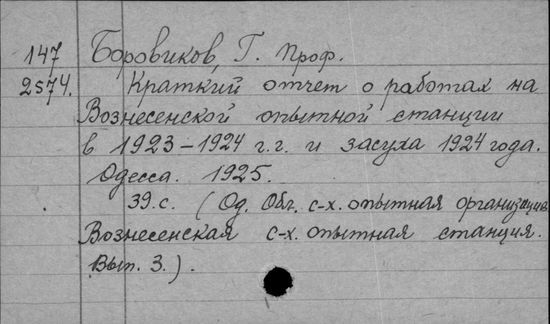 147 Боровиков, Г. Проф.
2574. Краткий отчет о работах на
Вознесенской опытной станции
в 1923-1924 г.г. и засуха 1924 года.
Одесса. 1925.
39.с. (Од. Обл. с-х. опытная организация
Вознесенская с-х. опытная станция.
Вып. 3.).